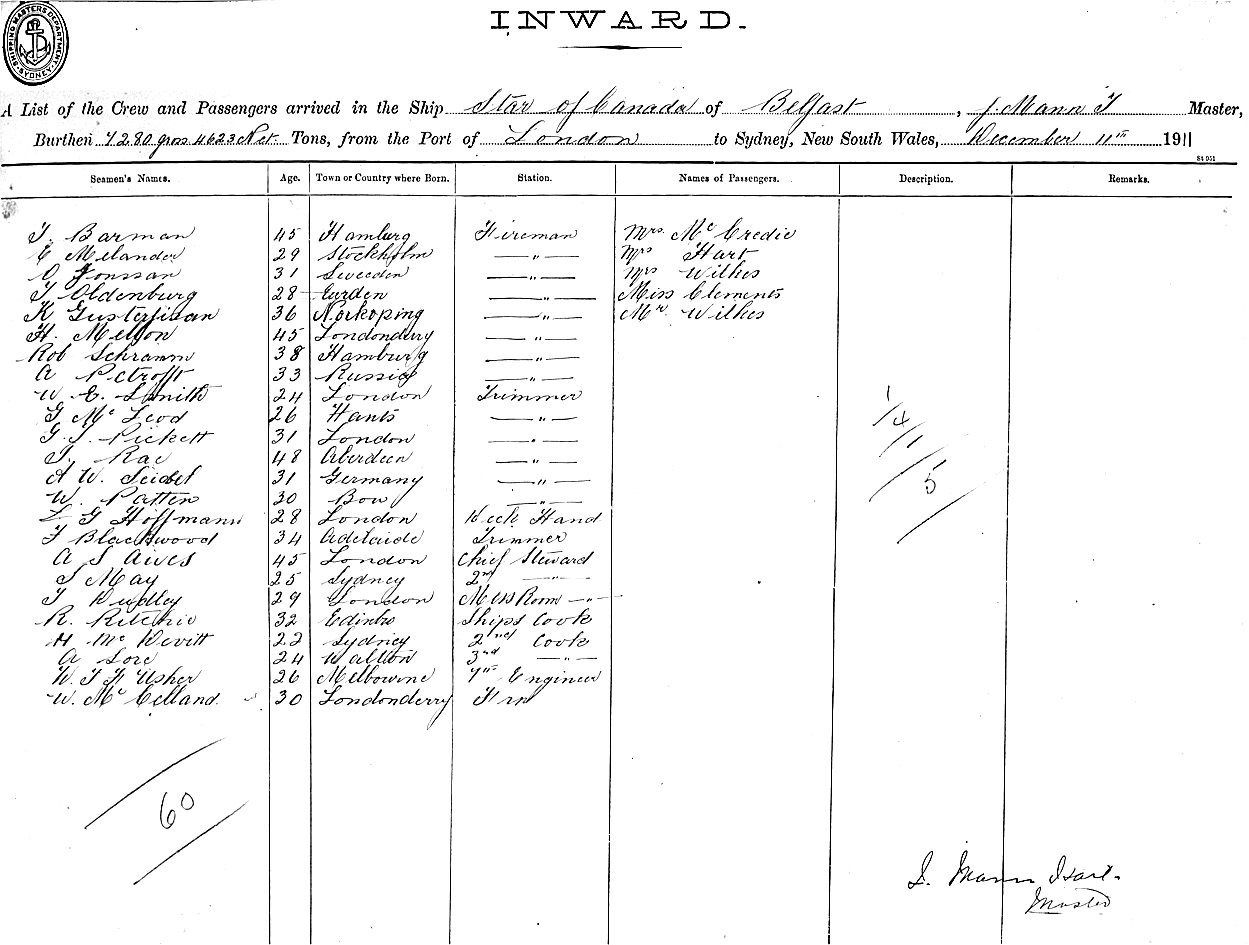 SHIPPING MASTERS DEPARTMENT SYDNEY
INWARD.
A List of the Crew and Passengers arrived in the Ship Star of Canada of Belfast, J. Mann Master,
Burthen 7280 gros 4623 Net Tons, from the Port of London to Sydney, New South Wales, December 11th 1911
St 951
Seamen's Names. Age. Town or Country where Born. Station. Names of Passengers. Description. Remarks.
T. Barman 45 Hamburg Fireman Mrs. Mc Credie
E Melander 29 Stockholm — " — Mrs Hart
O Jonssan 31 Sweeden — " — Mrs Wilkes
T Oldenburg 28 — " — Miss Clements
K Gusterfsan 36 Norkoping — " — Mr Wilkes
H. Melton 45 Londonderry — " —
Rob Schramm 38 Hamburg — " —
A Petrofft 33 Russia — " —
W E. Smith 24 London Trimmer
G Mc Leod 26 Hants — " —
G. J. Pickett 31 London — " —
J. Rae 48 Aberdeen — " —
A W. Seidel 31 Germany — " —
W. Patten 30 Bow — " —
L G Hoffmann 28 London Deck Hand
F Blackwood 34 Adelaide Trimmer
A S Aives 45 London Chief Steward
S May 25 Sydney 2nd — " —
T Dudley 29 London Mess Room — " —
R. Ritchie 32 Edinbro Ships Cook
H Mc Devitt 22 Sydney 2nd Cook
A Lore 24 Walton 3rd — " —
W. T. F. Usher 26 Melbourne 7th Engineer
W. Mc Celland. 30 Londonderry Frm
1/4/1/5
60
J. Mann Hart.
Master